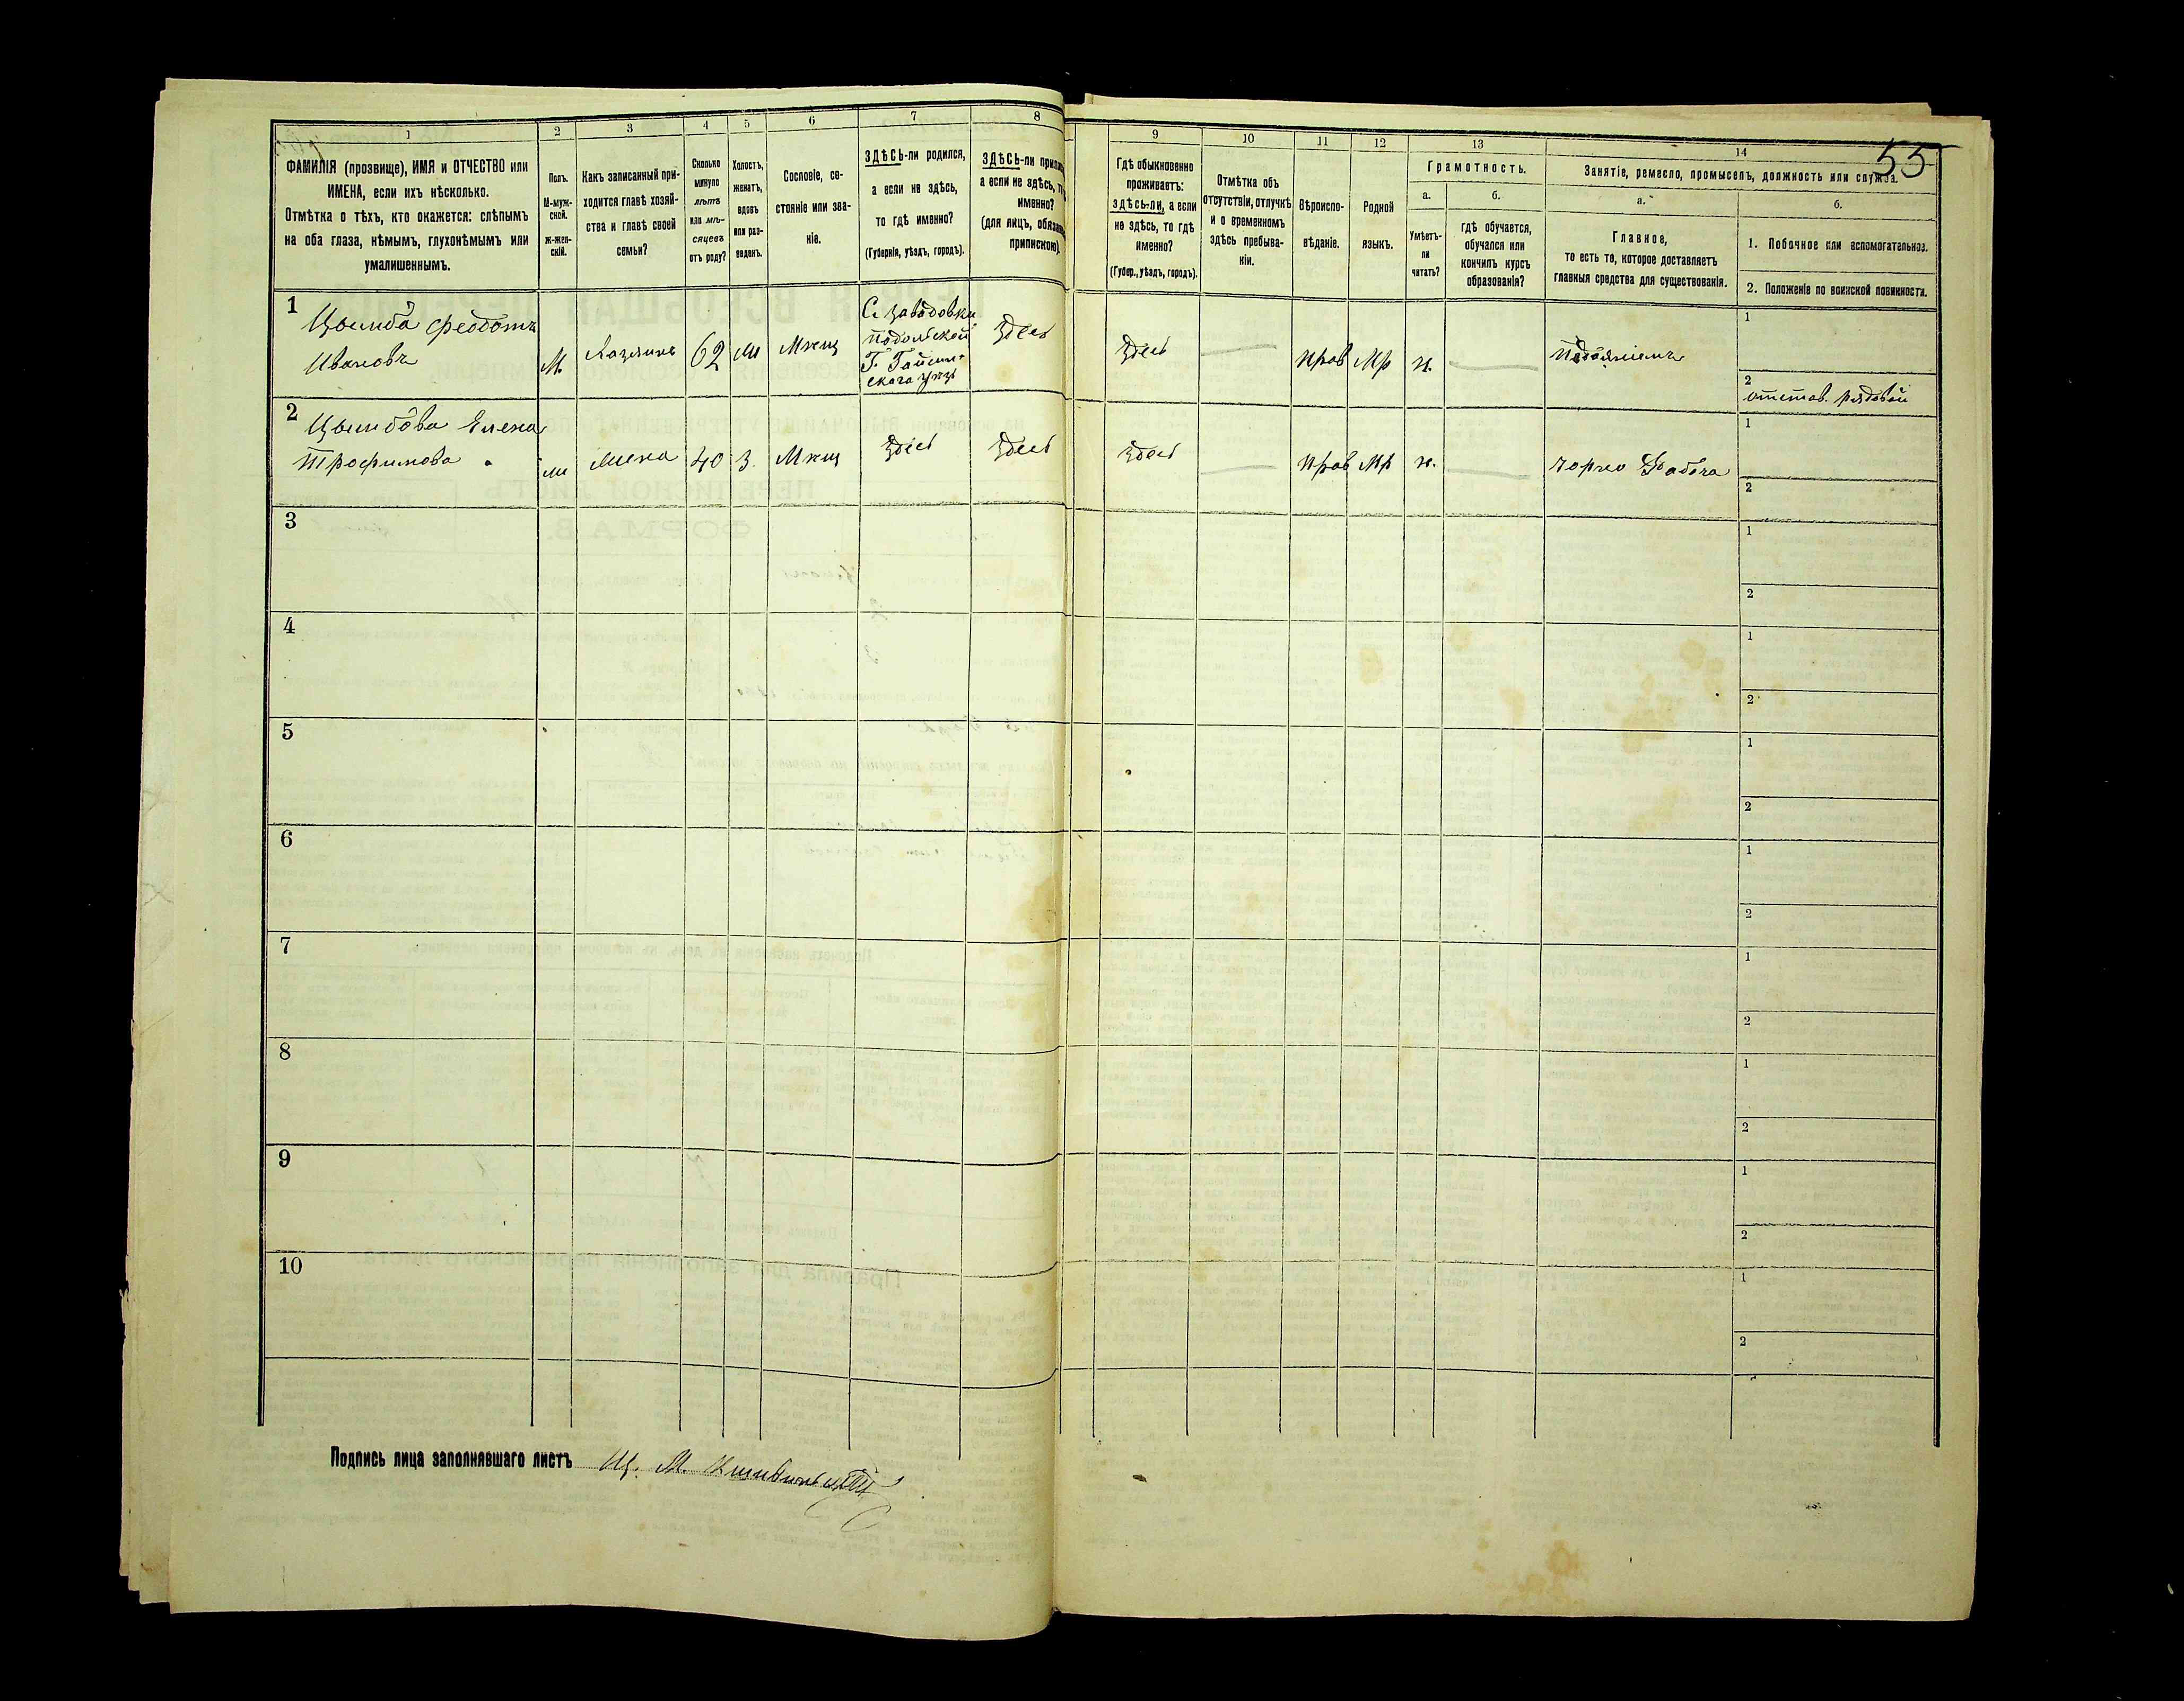 55
1 2 3 4 5 6 7 8 9 10 11 12 13 14
ФАМИЛІЯ (прозвище), ИМЯ и ОТЧЕСТВО или
ИМЕНА, если ихъ нѣсколько.
Отмѣтка о тѣхъ, кто окажется: слѣпымъ
на оба глаза, нѣмымъ, глухонѣмымъ или
умалишеннымъ.
Полъ.
М-муж-
ской.
ж-жен-
скій.
Какъ записанный при-
ходится главѣ хозяй-
ства и главѣ своей
семьи?
Сколько
минуло
лѣтъ
или мѣ-
сяцевъ
отъ роду?
Холостъ,
женатъ,
вдовъ
или раз-
веденъ.
Сословіе, со-
стояніе или зва-
ніе.
ЗДѢСЬ-ли родился,
а если не здѣсь,
то гдѣ именно?
(Губернія, уѣздъ, городъ).
ЗДѢСЬ-ли
а если не здѣсь,
именно?
(для лицъ,
припискою).
Гдѣ обыкновенно
проживаетъ:
здѣсь-ли, а если
не здѣсь, то гдѣ
именно?
(Губер., уѣздъ, городъ).
Отмѣтка объ
отсутствіи, отлучкѣ
и о временномъ
здѣсь пребыва-
ніи.
Вѣроиспо-
вѣданіе.
Родной
языкъ.
Грамотность.
а.
Умѣетъ-
ли
читать?
б.
гдѣ обучается,
обучался или
кончилъ курсъ
образованія?
Занятіе, ремесло, промыселъ, должность или служба.
а.
Главное,
то есть то, которое доставляетъ
главныя средства для существованія.
б.
1. Побочное или вспомогательное.
2. Положеніе по воинской повинности.
1 Цымба Феодотъ
Ивановъ
М.
Хозяинъ
62
Мѣщ
С. Завадовки
Подольской
Г. Гайсин-
скаго уѣз
здесь
здесь
прав
Мр
н.
1
2
отстав. рядовой
2 Цымбова Елена
Трофимова
жена
40
З.
Мѣщ
здесь
здесь
здесь
прав
Мр
н.
1
2
3
1
2
4
1
2
5
1
2
6
1
2
7
1
2
8
1
2
9
1
2
10
1
2
Подпись лица заполнявшаго листъ